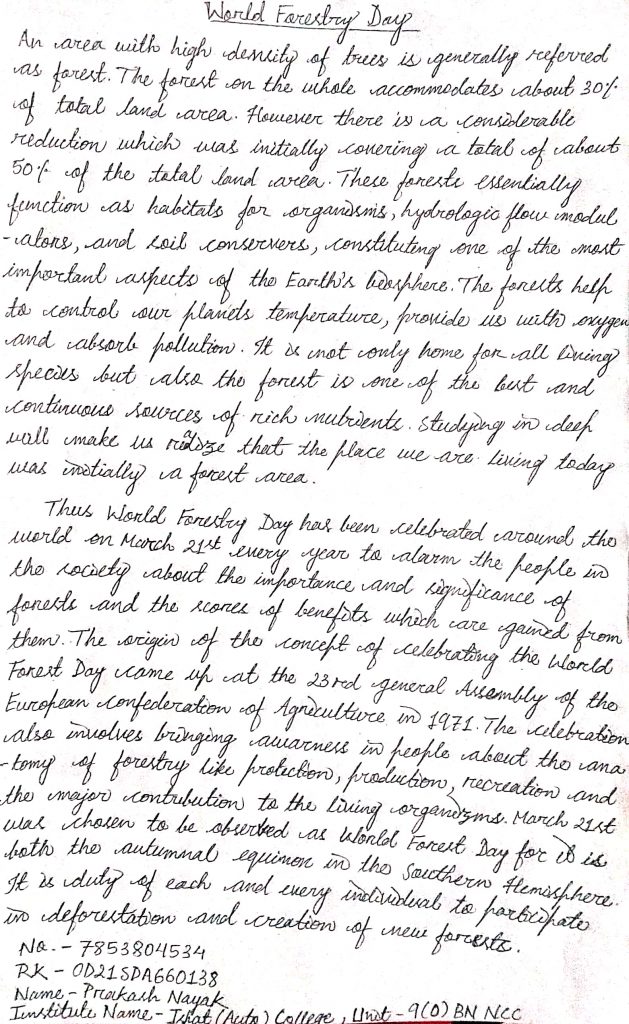 World Forestry Day
An area with high density of trees is generally referred
as forest. The forest on the whole accommodates about 30%
of total land area. However there is a considerable
reduction which was initially covering a total of about
50% of the total land area. These forests essentially
function as habitats for organisms, hydrologic flow modul
-ators, and soil conservers, constituting one of the most
important aspects of the Earth's biosphere. The forests help
to control our planets temperature, provide us with oxygen
and absorb pollution. It is not only home for all living
species but also the forest is one of the best and
continuous sources of rich nutrients. Studying in deep
will make us realize that the place we are living today
was initially a forest area.
Thus World Forestry Day has been celebrated around the
world on March 21st every year to alarm the people in
the society about the importance and significance of
forests and the scores of benefits which are gained from
them. The origin of the concept of celebrating the World
Forest Day came up at the 23rd general Assembly of the
European confederation of Agriculture in 1971. The celebration
also involves bringing awarness in people about the ana
-tomy of forestry like protection, production, recreation and
the major contribution to the living organisms. March 21st
was chosen to be observed as World Forest Day for it is
both the autumnal equinon in the Southern Hemisphere.
It is duty of each and every individual to participate
in deforestation and creation of new forests.
No. - 7853804534
RK - OD21SDA660138
Name - Prakash Nayak
Institute Name - Ispat (Auto) College, Unit - 9(O) BN NCC